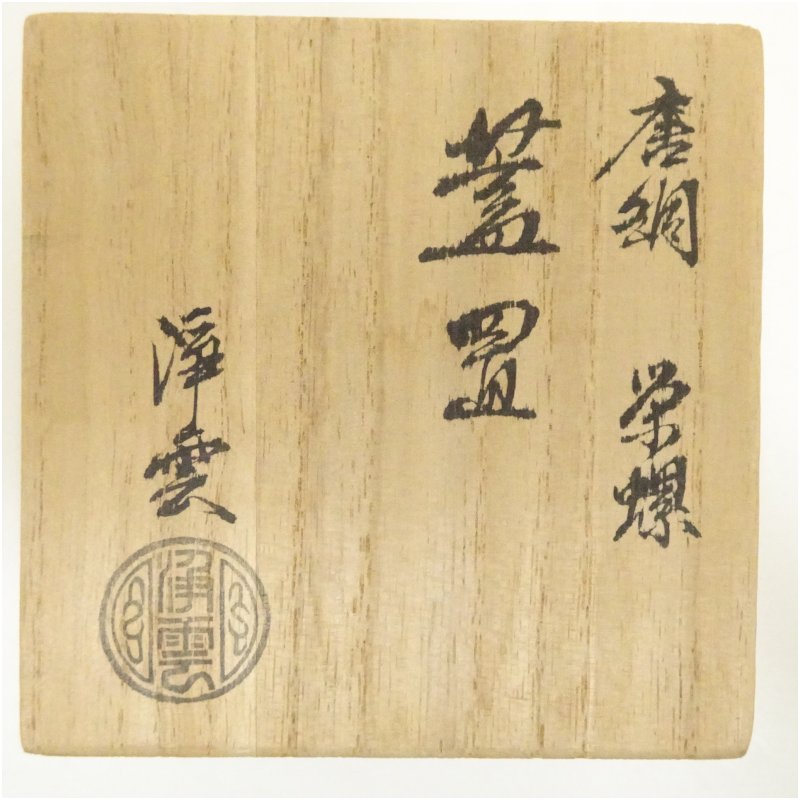 唐銅 栄螺
蓋置
浄雲
浄雲